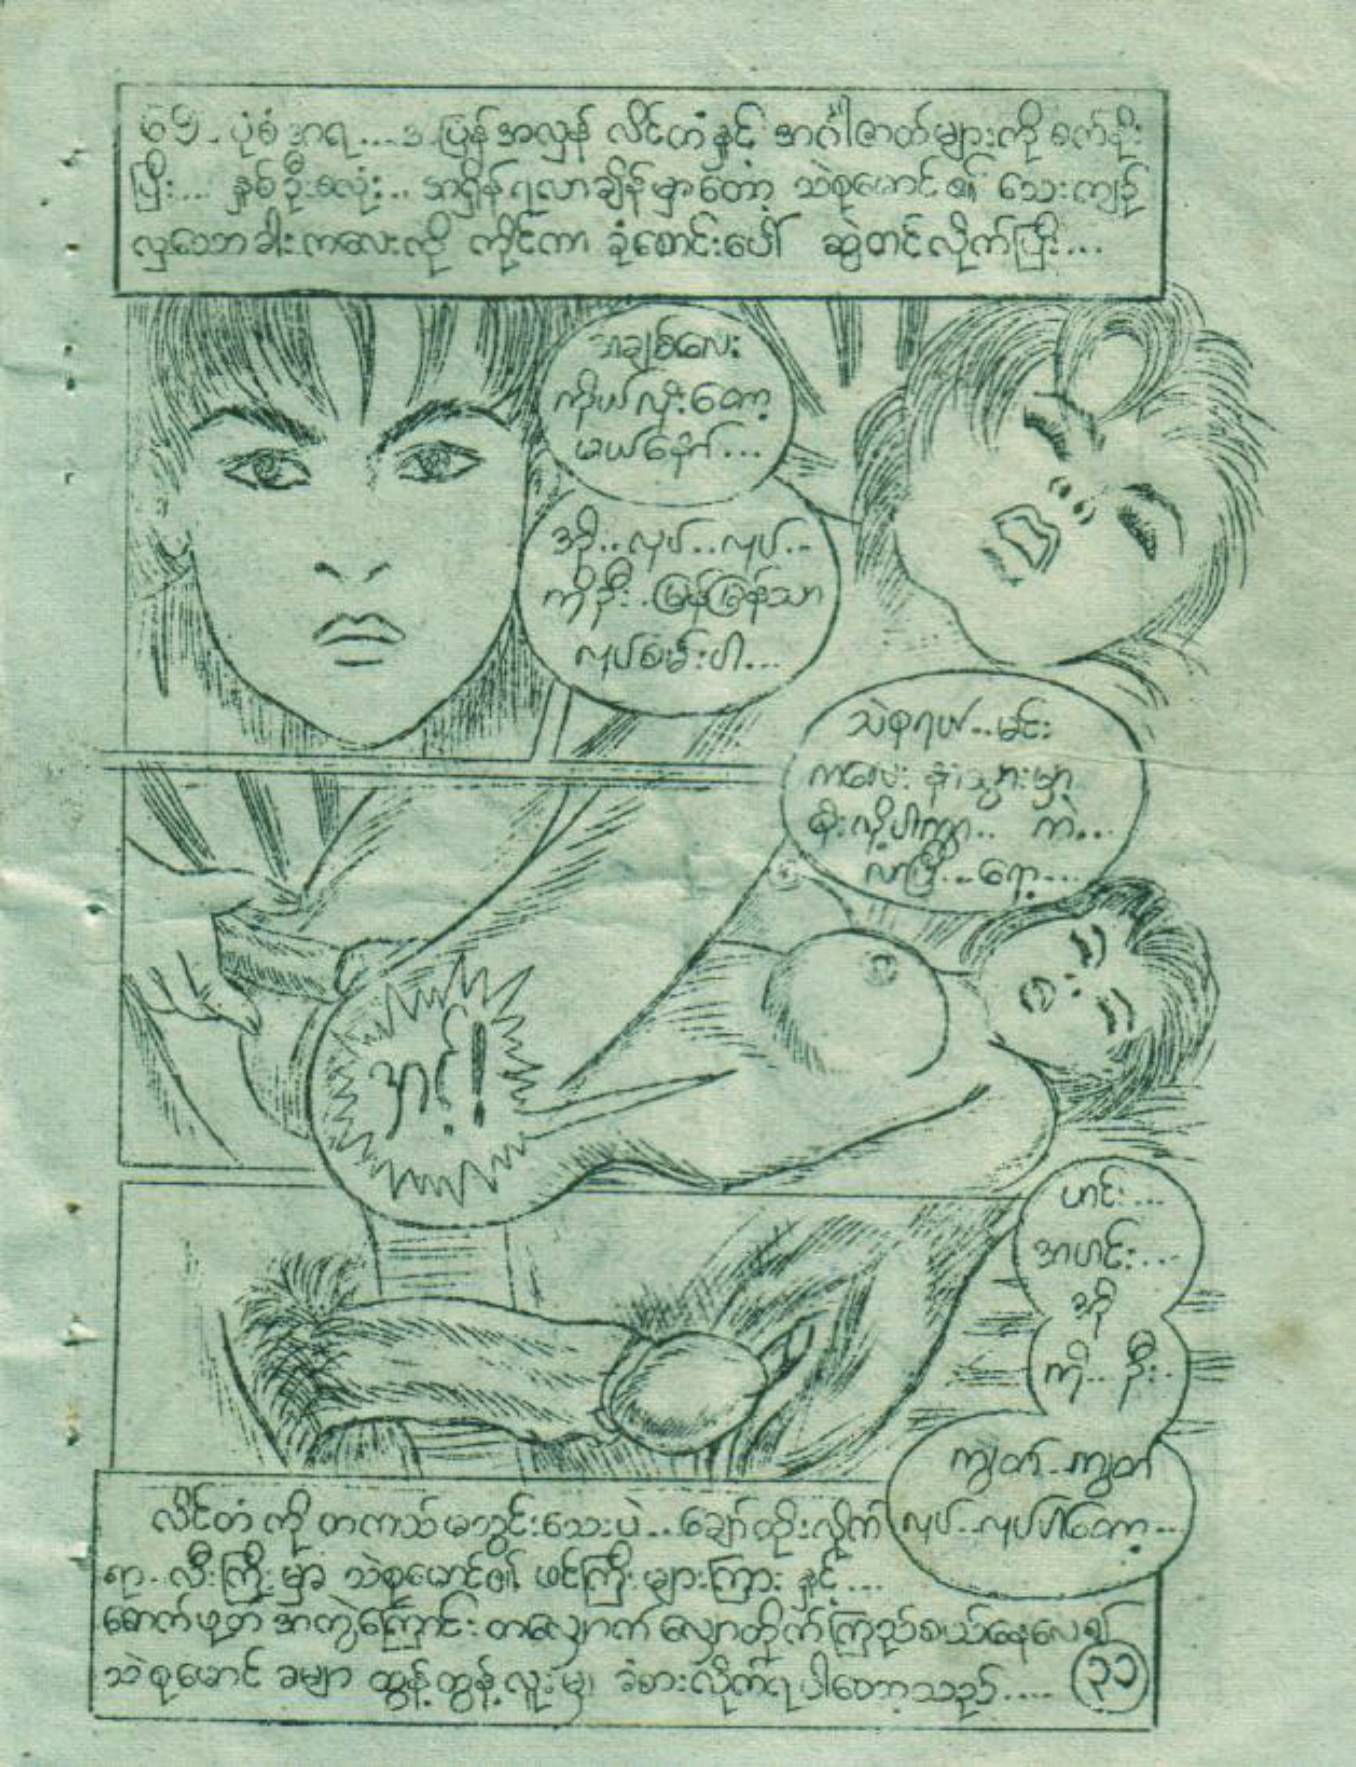 ၆၉ . ပုံစံအရ ... အပြန်အလှန် လိင်တံနှင့် အင်္ဂါဇာတ်များကို စက်နိုး
ပြီး ... နှစ်ဦးစလုံး .. အရှိန်ရလာချိန်မှာတော့ သဲစုမောင်၏ သေးကျဉ်
လှသောခါးကလေးကို ကိုင်ကာ ခုံစောင်းပေါ် ဆွဲတင်လိုက်ပြီး ...
အချစ်လေး
ကိုယ်လိုးတော့
မယ်နော် ...
အို .. လုပ် .. လုပ် ..
ကိုဦး . မြန်မြန်သာ
လုပ်စမ်းပါ ...
သဲစုရယ် .. မင်း
ကလေး နာသွားမှာ
စိုးလို့ပါကွာ .. ကဲ ...
လာပြီ ... ရော့ ...
အင့်!
ဟင်း ...
အဟင်း ...
အို
ကို .. ဦး .
ကျွတ် .. ကျွတ်
လုပ် .. လုပ်ပါတော့ ...
လိင်တံကို တကယ်မသွင်းသေးပဲ .. ချော်ထိုးလိုက်
ရာ . လီးကြီးမှာ သဲစုမောင်၏ ဖင်ကြီးများကြား နှင့် ...
စောက်ဖုတ် အကွဲကြောင်းတလျှောက် လျှောတိုက်ကြည်စယ်နေလေ၍
သဲစုမောင် ခမျာ ထွန့်ထွန့်လူးမျှ ခံစားလိုက်ရပါတော့သည် .....
၃၁